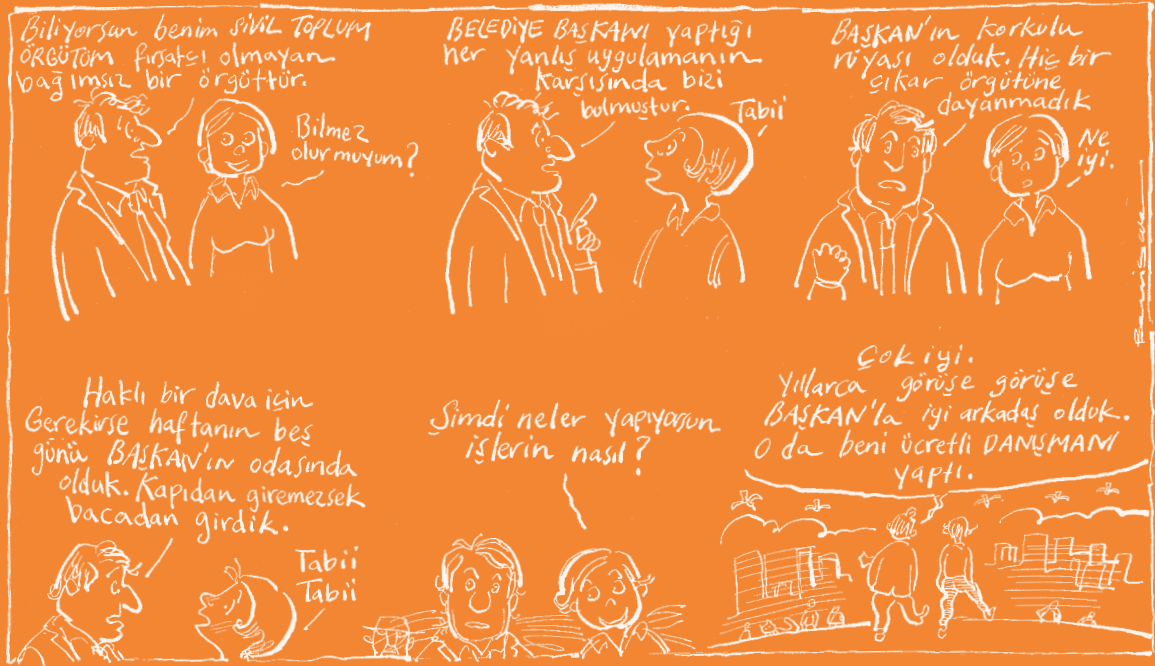 Biliyorsun benim SİVİL TOPLUM
ÖRGÜTÜM fırsatçı olmayan
bağımsız bir örgüttür.
Bilmez
olur muyum?
BELEDİYE BAŞKANI yaptığı
her yanlış uygulamanın
karşısında bizi
bulmuştur.
Tabii
BAŞKAN'ın korkulu
rüyası olduk. Hiç bir
çıkar örgütüne
dayanmadık
Ne
iyi.
Haklı bir dava için
Gerekirse haftanın beş
günü BAŞKAN'IN odasında
olduk. Kapıdan giremezsek
bacadan girdik.
Tabii
Tabii
Şimdi neler yapıyorsun
işlerin nasıl?
Çok iyi.
Yıllarca görüşe görüşe
BAŞKAN'la iyi arkadaş olduk.
O da beni ücretli DANIŞMANI
yaptı.